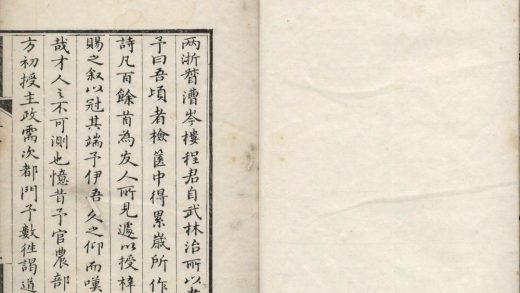 两浙督漕岑樓程君自武林治所以
予曰吾頃者檢篋中得累歲所作
詩凡百餘首為友人所見遽以授梓
賜之叙以冠其端予伊吾久之仰而嘆
哉才人之不可測也憶昔予官農部
方初授主政需次都門予數徃謁道